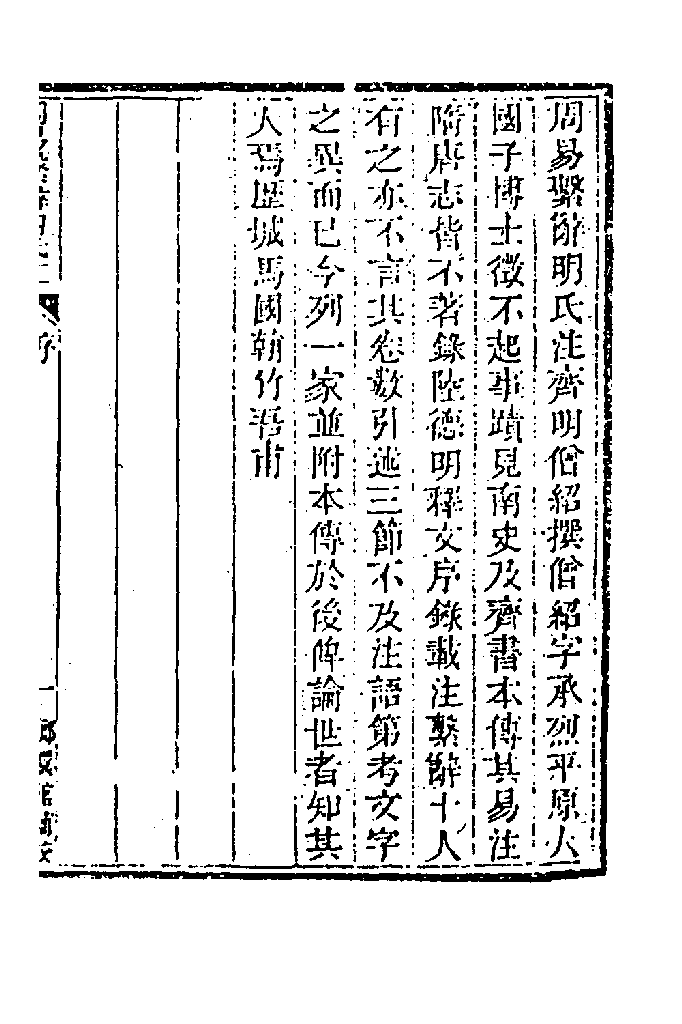 周易繫辭明氏注齊明僧紹撰僧紹字承烈平原人
國子博士徵不起事蹟見南史及齊書本傳其易注
隋唐志皆不著錄陸德明釋文序錄載注繫辭十人
有之亦不言其卷數引述三節不及注語第考文字
之異而已今列一家並附本傳於後俾論世者知其
人焉歷城馬國翰竹吾甫
序
一